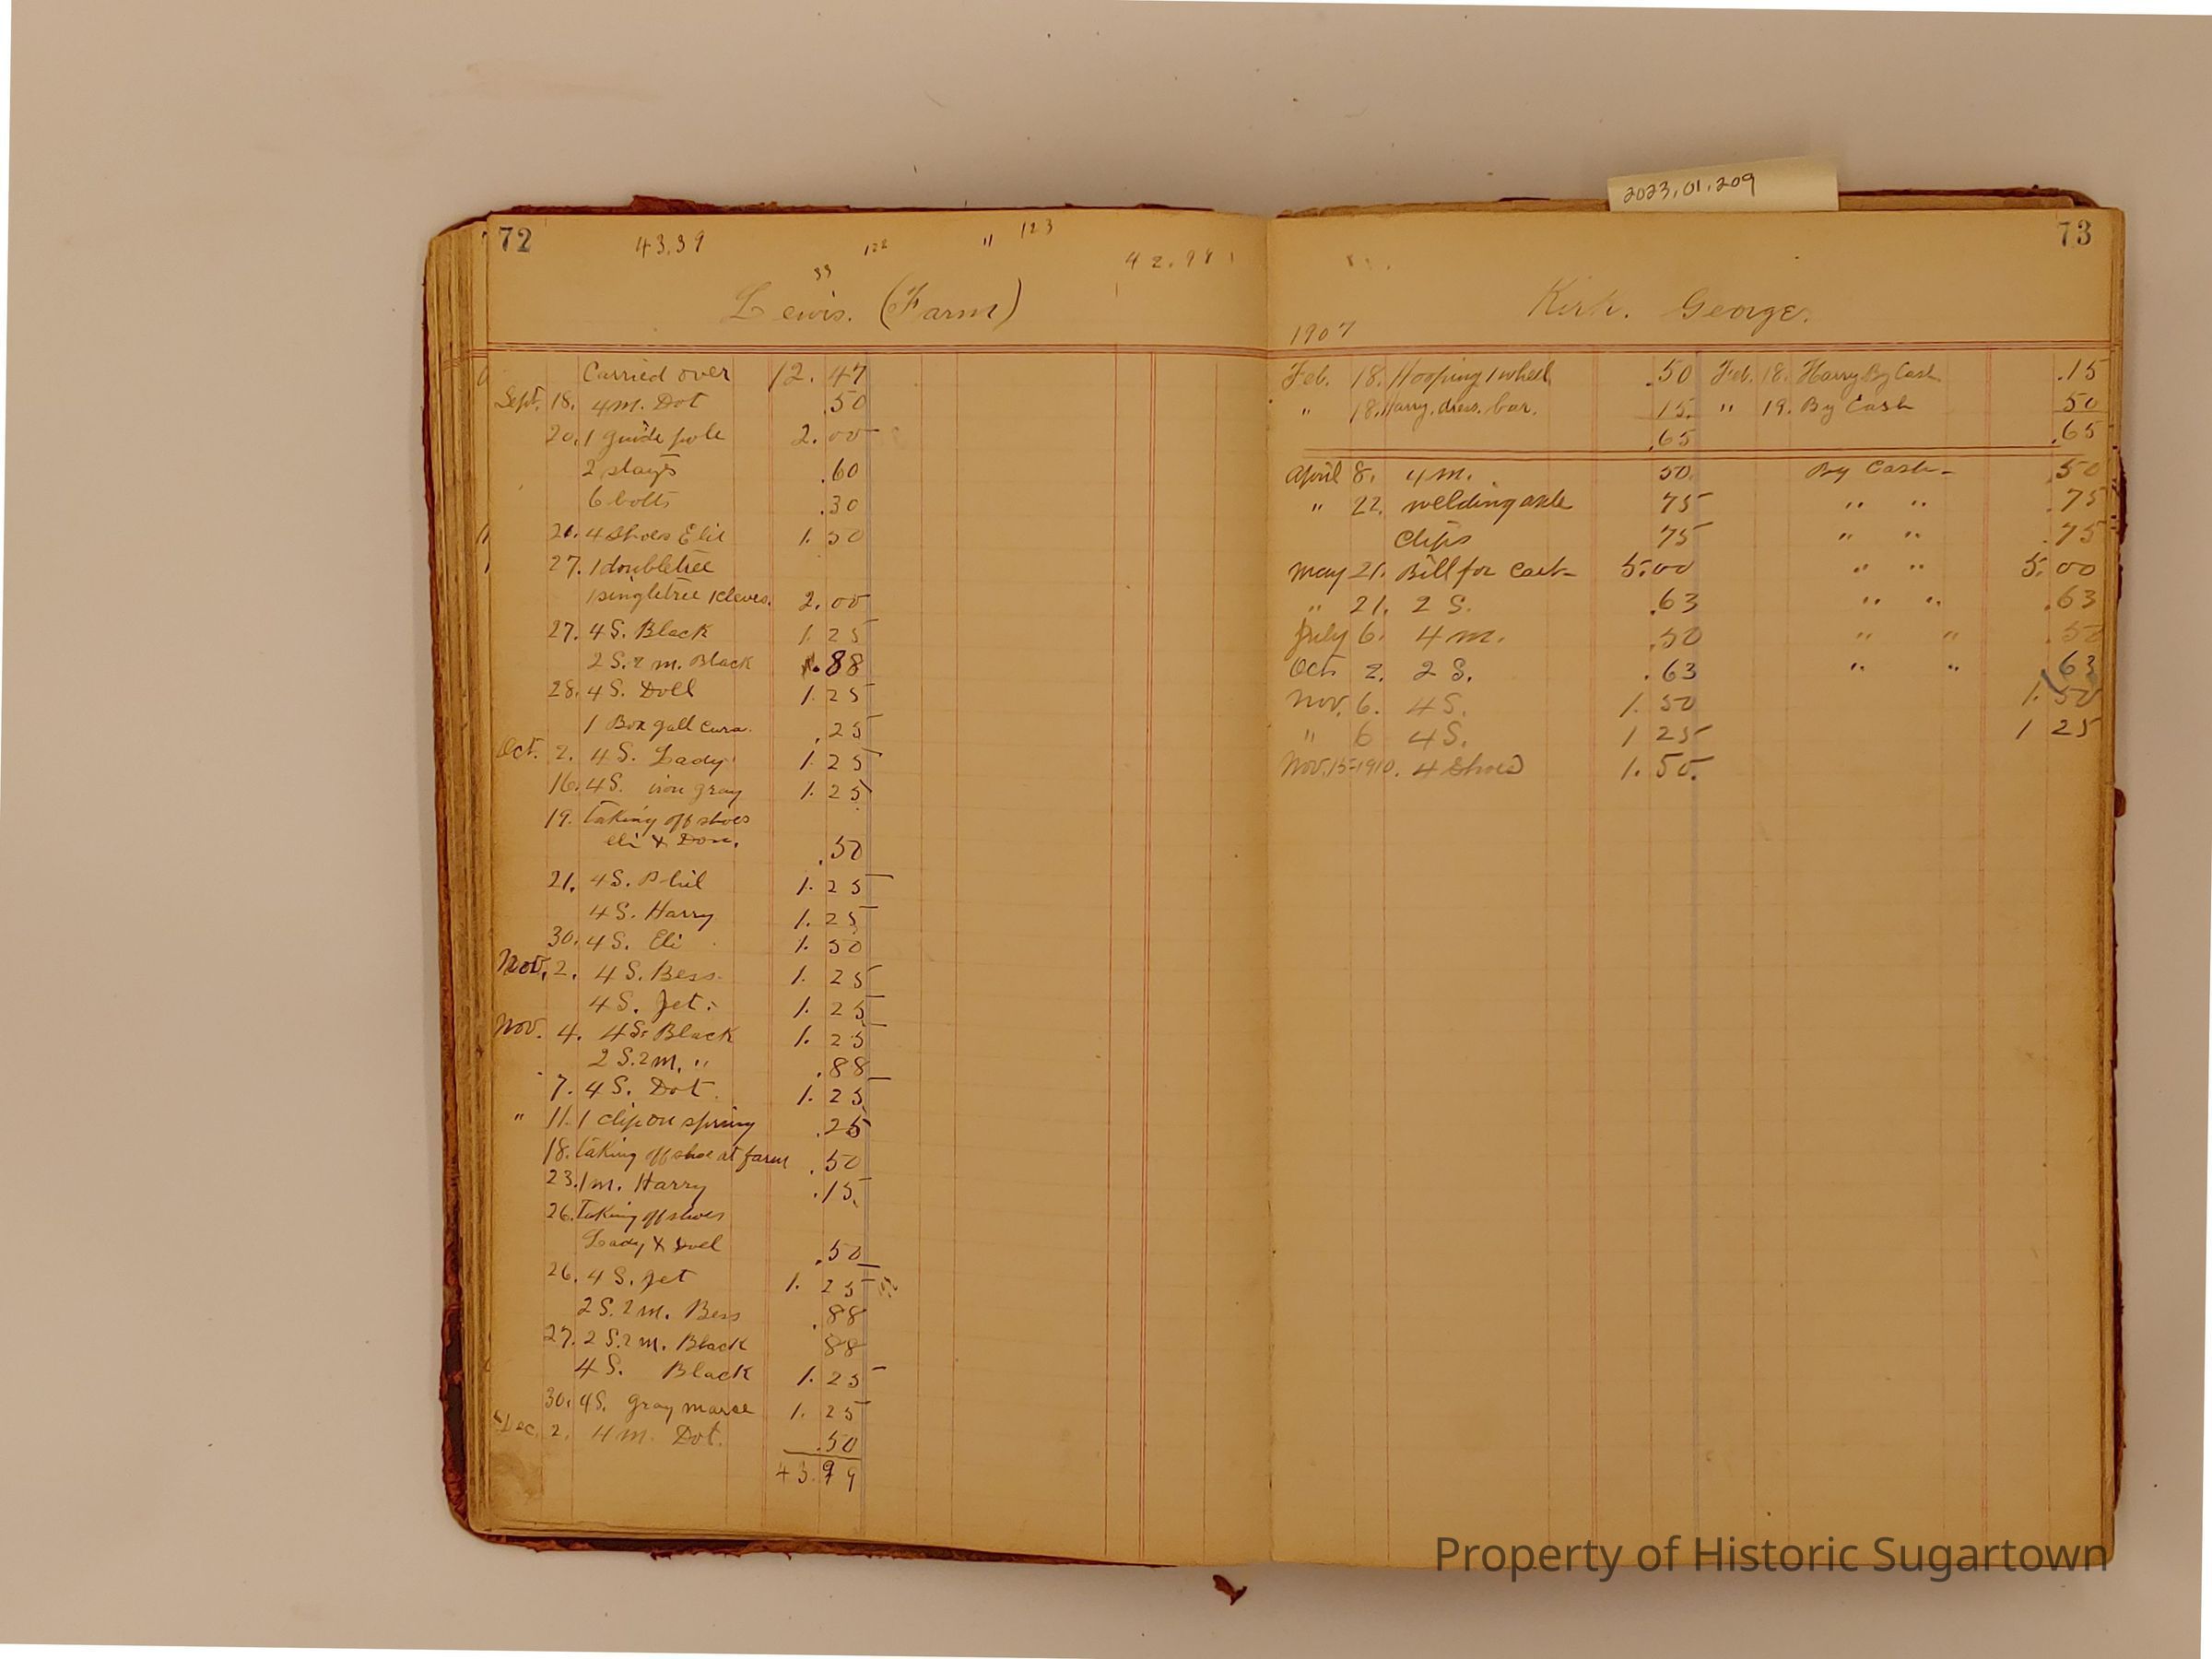 2023.01.209
72
43.39
123
42.98
Lewis. (Farm)
Carried over 12.47
Sept. 18. 4 m. Dot .50
20. 1 guide pole 2.00
2 stays .60
6 bolts .30
26. 4 Shoes Eli 1.50
27. 1 doubletree
1 singletree 1 cleves. 2.00
27. 4 S. Black 1.25
2 S. 2 m. Black .88
28. 4 S. Doll 1.25
1 Box gall cura. .25
Oct. 2. 4 S. Lady 1.25
16. 4 S. iron gray 1.25
19. Taking off shoes
Eli & Don. .50
21. 4 S. Phil 1.25
4 S. Harry 1.25
30. 4 S. Eli 1.50
Nov. 2. 4 S. Bess. 1.25
4 S. Jet. 1.25
Nov. 4. 4 S. Black 1.25
2 S. 2 m. " .88
7. 4 S. Dot. 1.25
" 11. 1 clip on spring .25
18. taking off shoe at farm .50
23. 1 m. Harry .15
26. Taking off shoes
Lady & .50
26. 4 S. Jet 1.25
2 S. 2 m. Bess .88
27. 2 S. 2 m. Black 88
4 S. Black 1.25
30. 4 S. gray marse 1.25
Dec. 2. 4 m. Dot. .50
43.99
73
Kirk. George.
1907
Feb. 18. Hooping 1 wheel .50 Feb. 18. Harry By Cash .15
" 18. Harry. dress. bar. 15. " 19. By Cash 50
.65 .65
April 8. 4 m. 50. By Cash .50
" 22. welding axle 75 " " .75
Clips 75 " " .75
May 21. Bill for Cart 5.00 " " 5.00
" 21. 2 S. .63 " " .63
July 6. 4 m. .50 " " .50
Oct 2. 2 S. .63 " " .63
Nov. 6. 4 S. 1.50 1.50
" 6 4 S. 1 25 1 25
Nov. 15-1910. 4 Shoes 1.50.
Property of Historic Sugartown